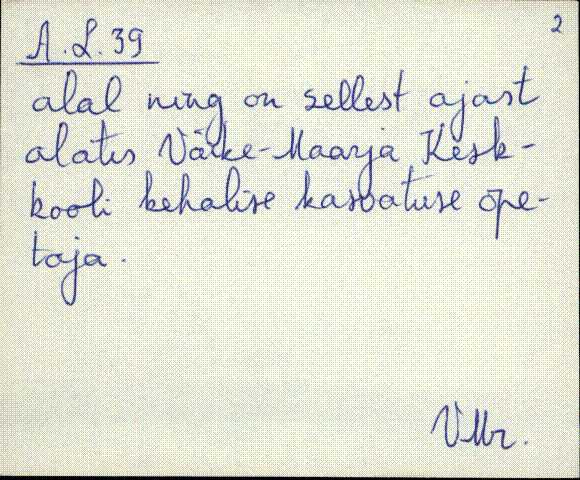 2
A.L.39
alal ning on sellest ajast
alates Väike-Maarja Kesk-
kooli kehalise kasvatuse õpe-
taja.
VMr.